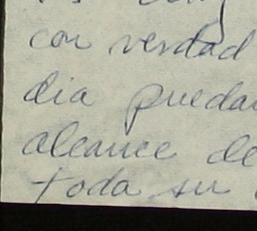 con verdad
dia pueda
alcance de
toda su